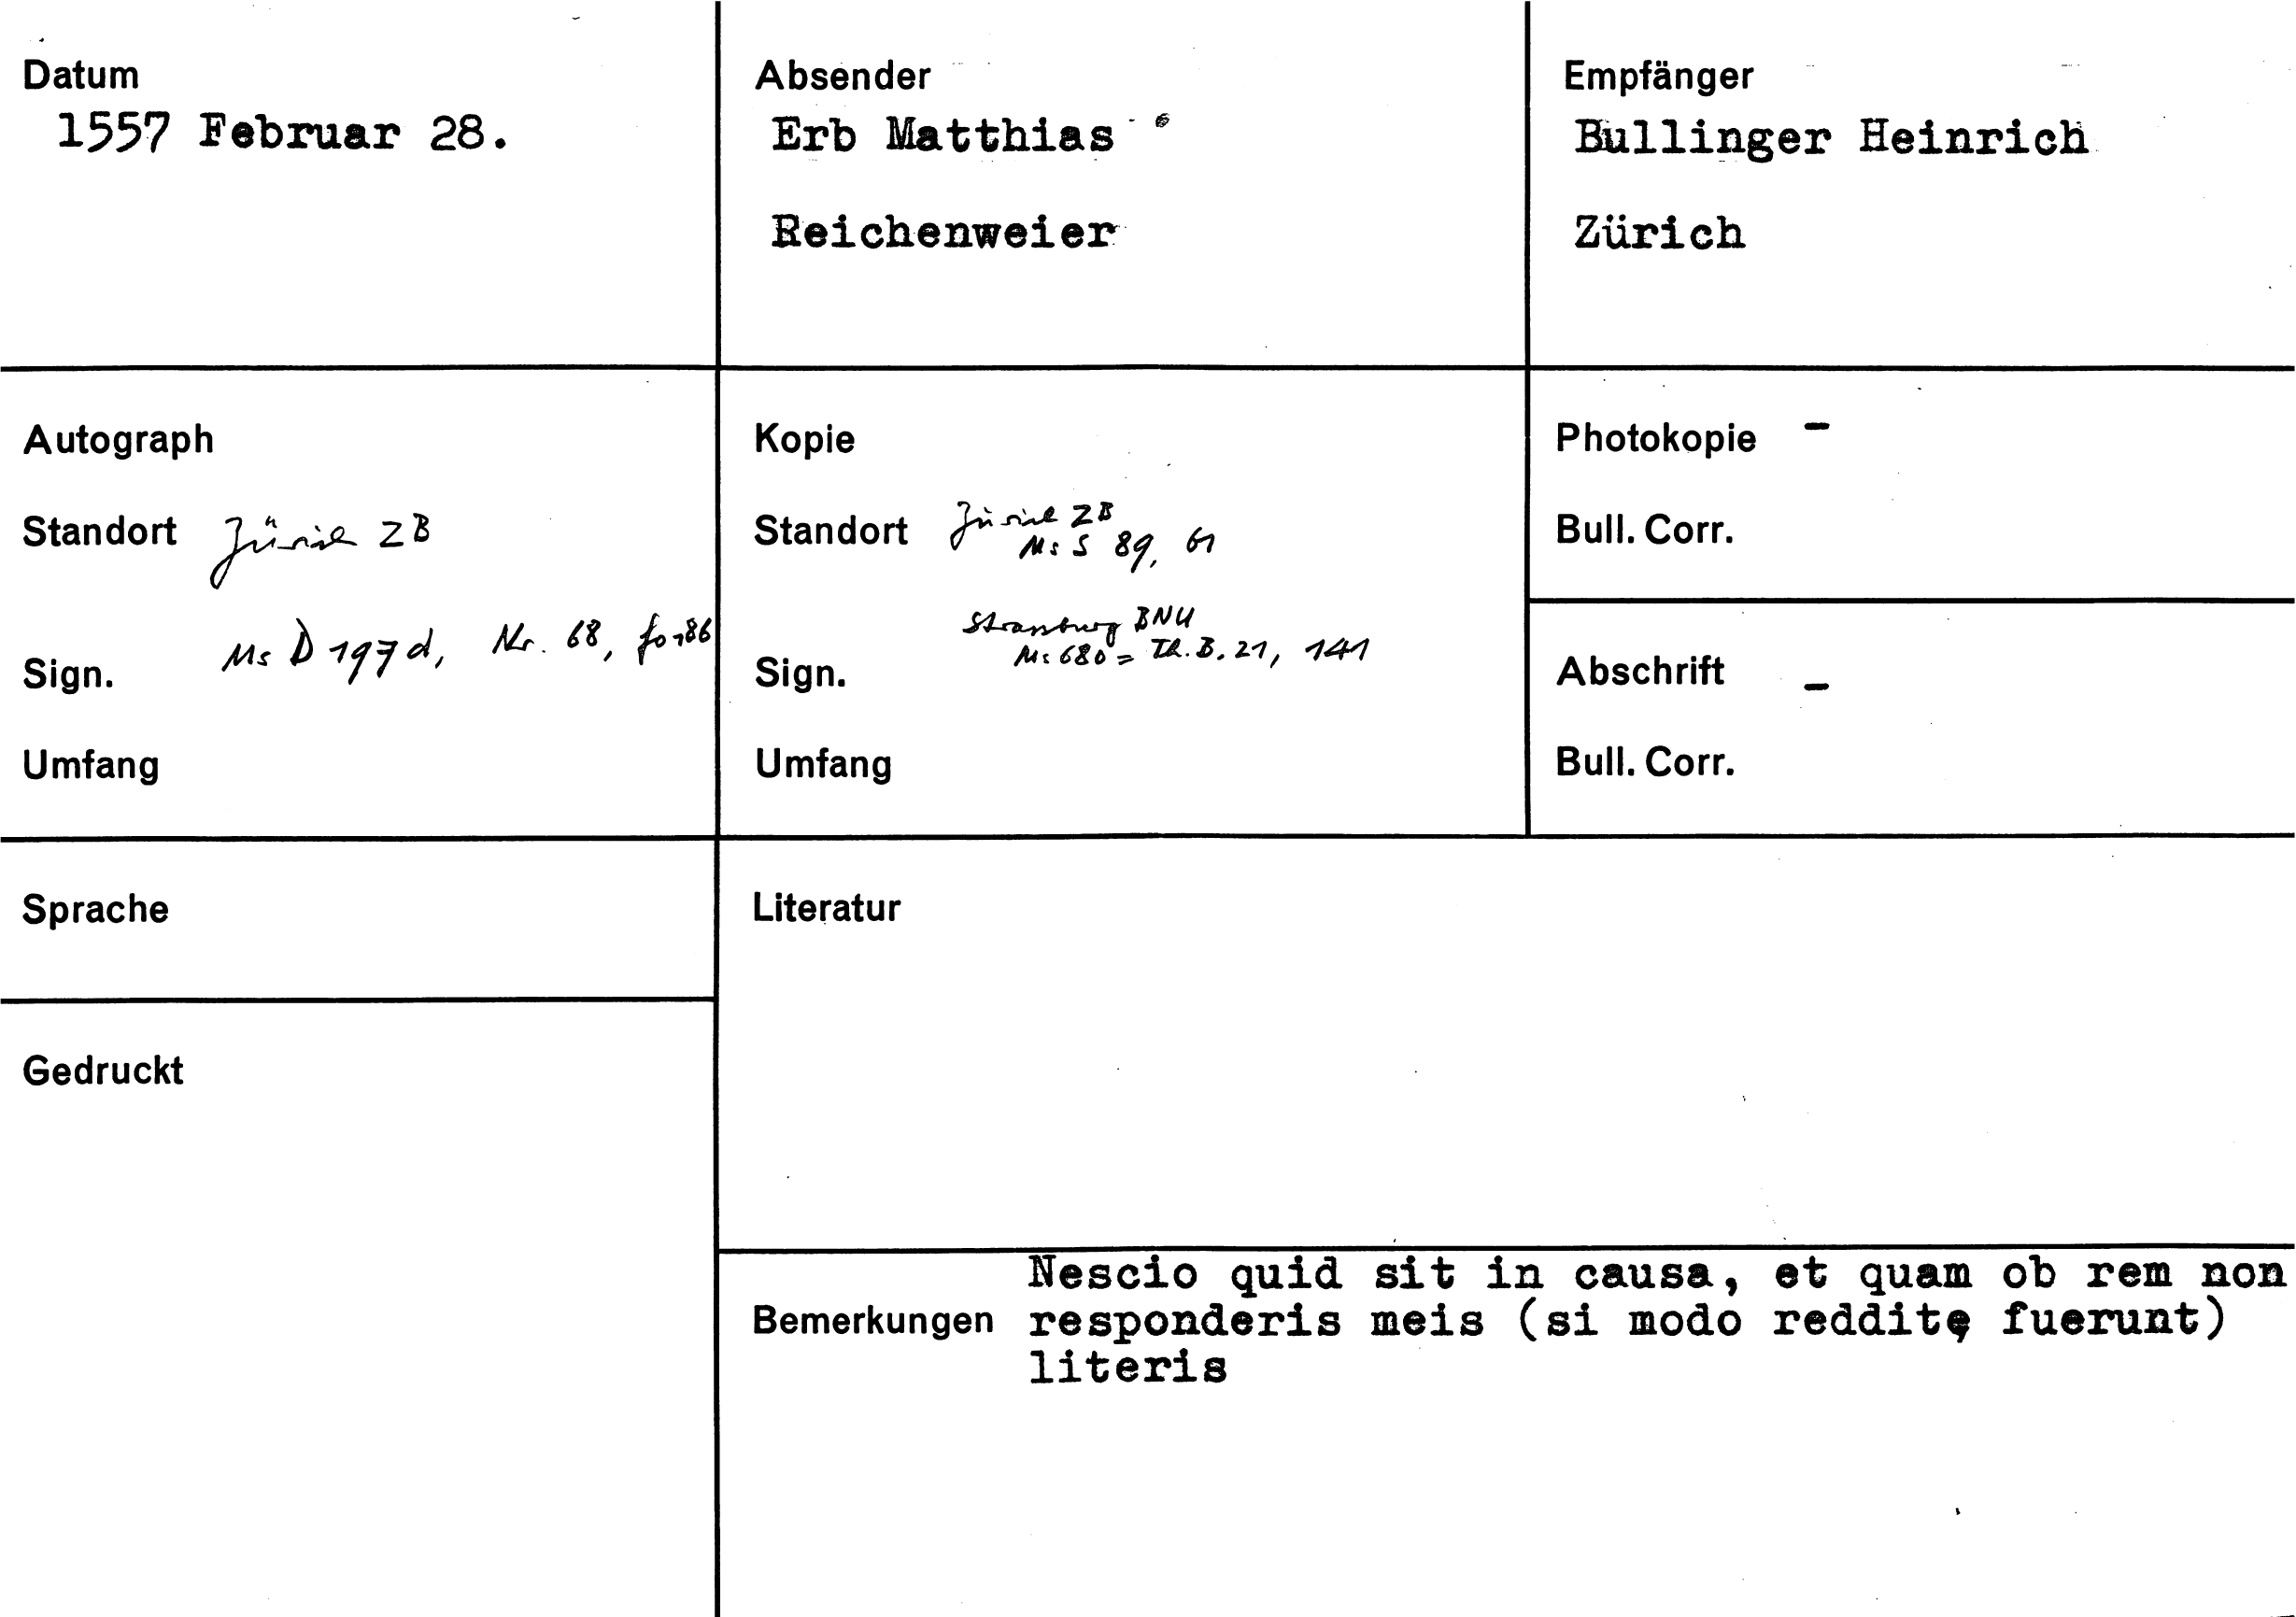 Datum
1557 Februar 28.
Absender
Erb Matthias
Reichenweier
Empfänger
Bullinger Heinrich
Zürich
Autograph
Standort Zürich ZB
Sign. Ms D 197d, Nr. 68,
Umfang
Kopie
Standort Zürich ZB
Ms S 89, 61
Strassburg BNU
Sign. Ms 680 = Th. B. 21, 141
Umfang
Photokopie –
Bull. Corr.
Abschrift –
Bull. Corr.
Sprache
Gedruckt
Literatur
Nescio quid sit in causa, et quam ob rem non
Bemerkungen responderis meis (si modo redditę fuerunt)
literis